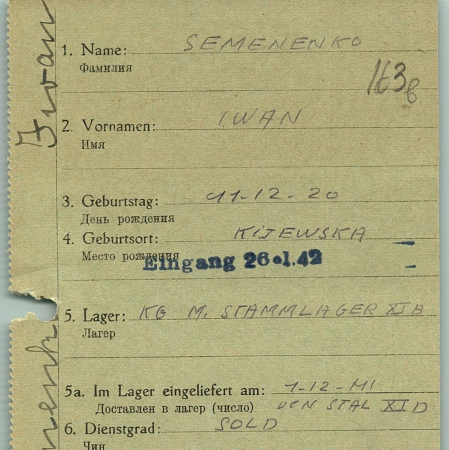 1. Name: SEMENENKO
Фамилия
163
2. Vornamen: IWAN
Имя
3. Geburtstag: 11-12-20
День рождения
4. Geburtsort: KIJEWSKA
Место рождения
Eingang 26.1.42
5. Lager: KG M. STAMMLAGER XI B
Лагер
5a. Im Lager eingeliefert am: 1-12-41
Доставлен в лагер (число) VON STAL XI D
6. Dienstgrad: SOLD
Чин
Iwan